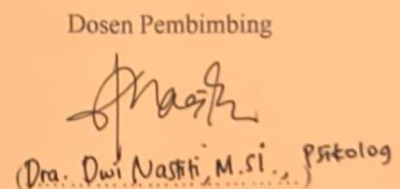 Dosen Pembimbing
(Dra. Dwi Nastiti, M.Si., Psikolog